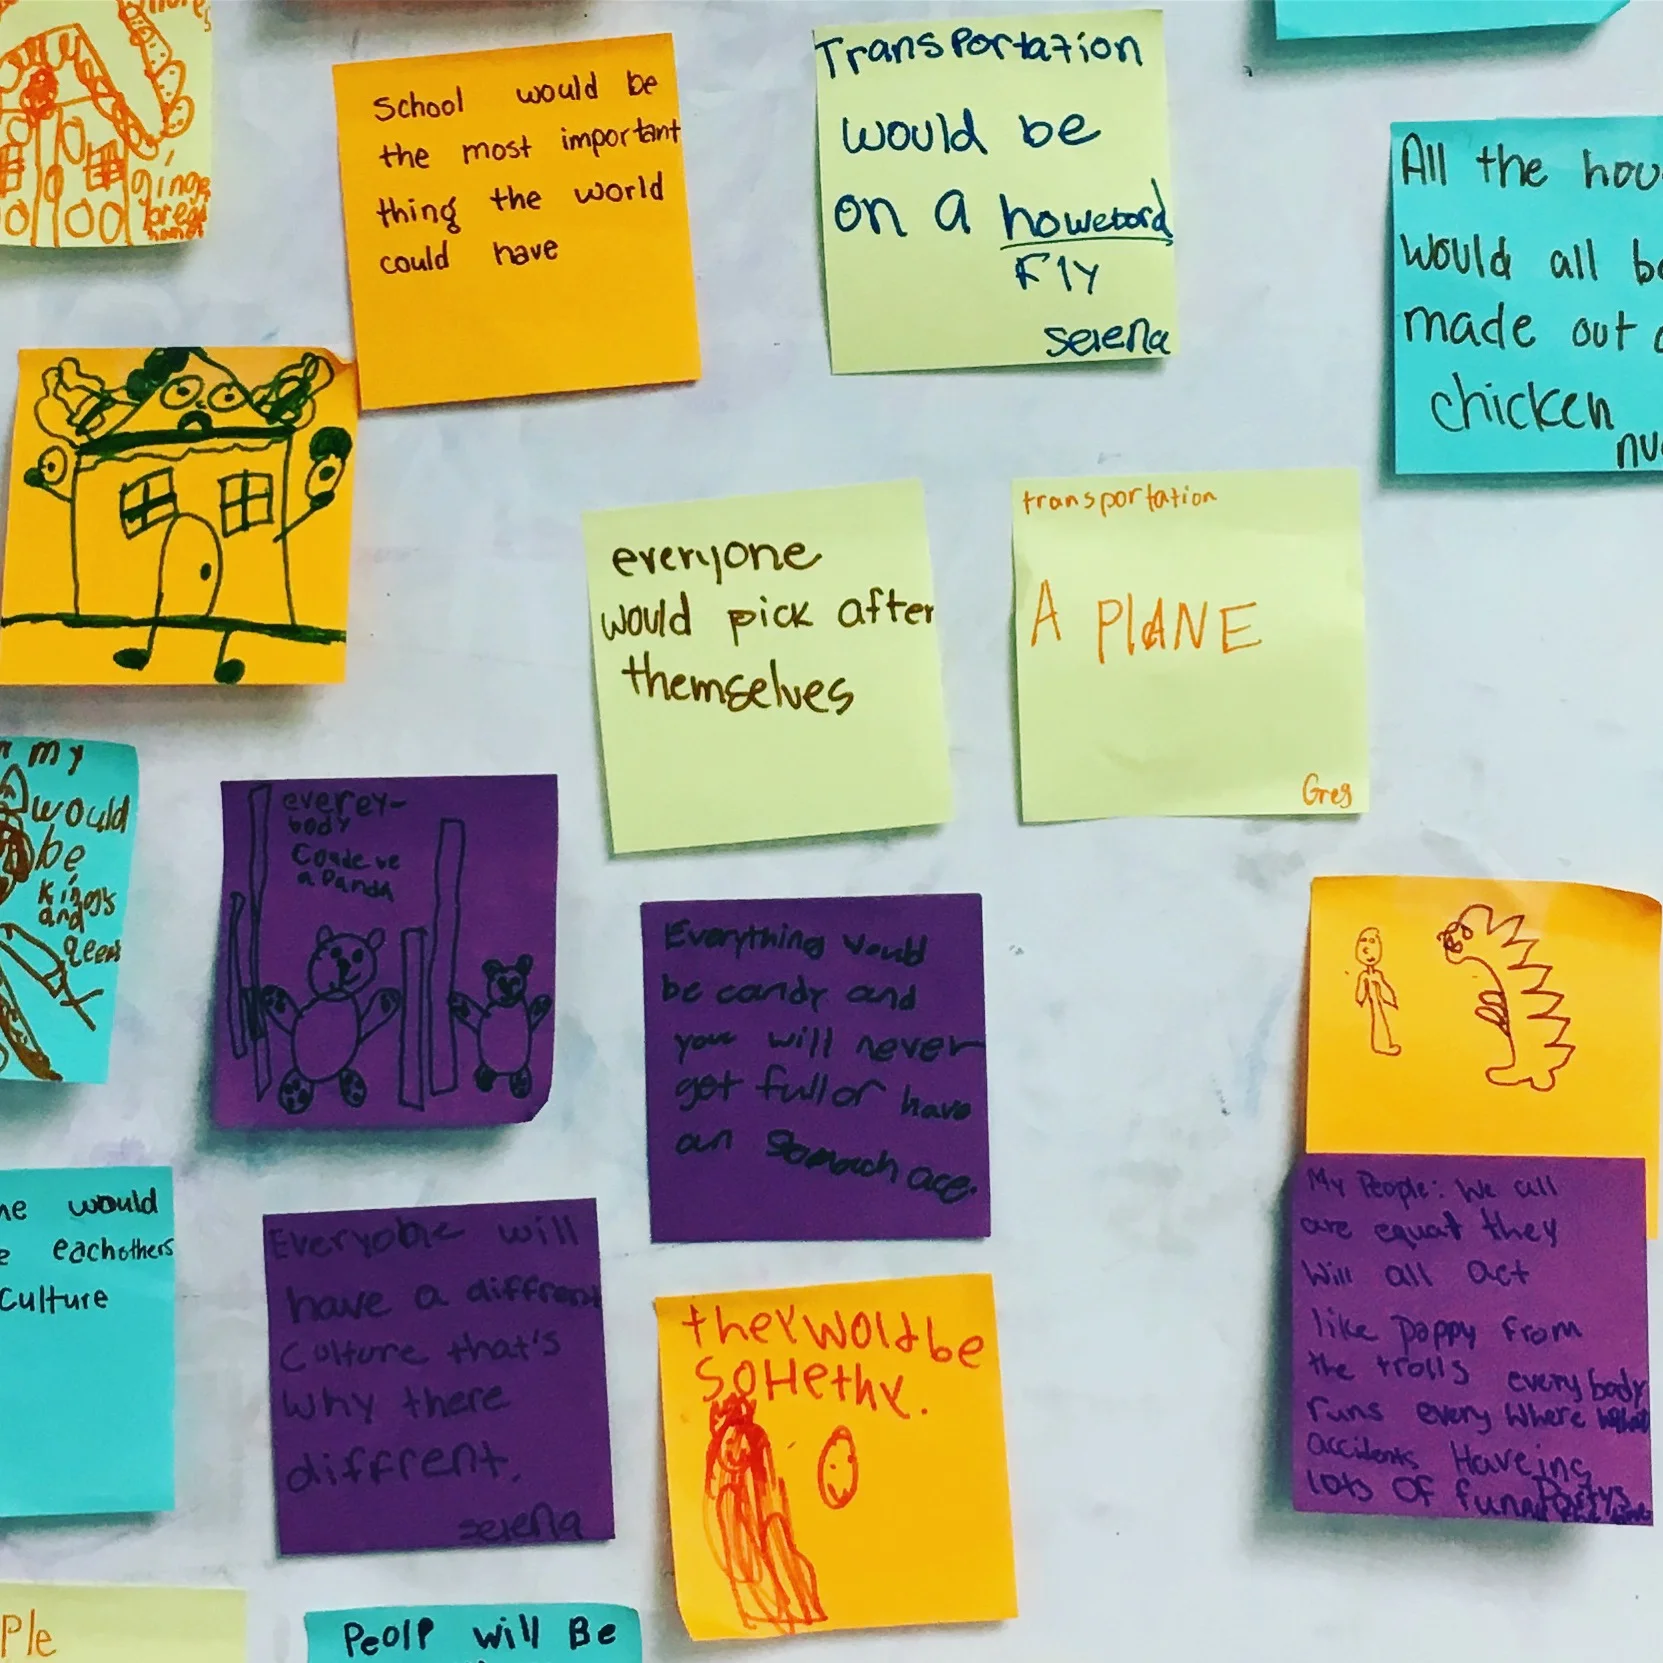 ginge
bread
School would be
the most important
thing the world
could have
Transportation
would be
on a howebord
Fly
Selena
All the hou
would all be
made out
chicken
nu
everyone
would pick after
themselves
transportation
A PlANE
Greg
my
would
be
kings
and
qeens
everey-
body
Coude be
a Panda
Everything would
be candy and
you will never
get full or have
an stomach ace.
My People: We all
are equat they
Will all act
like poppy from
the trolls everybody
runs every where
accidents Haveing
lots of funn
ne would
e eachothers
Culture
Everyobie will
have a diffrent
Culture that's
why there
diffrent.
Selena
theywoldbe
soHethy.
Ple
Peolp will Be